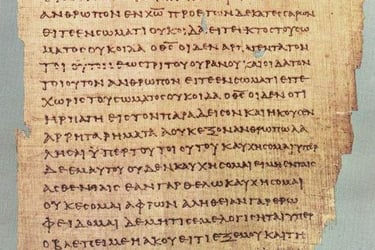 ΑΝΘΡΩΠΟΝ ΕΝ Χ̅Ω̅ ΠΡΟ ΕΤΩΝ ΔΕΚΑΤΕϹϹΑΡΩΝ
ΕΙΤΕ ΕΝ ϹΩΜΑΤΙ ΟΥΚ ΟΙΔΑ ΕΙΤΕ ΕΚΤΟϹ ΤΟΥ ϹΩ
ΜΑΤΟϹ ΟΥΚ ΟΙΔΑ Ο Θ̅Ϲ̅ ΟΙΔΕΝ ΑΡΠΑΓΕΝΤΑ ΤΟΝ
ΤΟΙΟΥΤΟΝ ΕΩϹ ΤΡΙΤΟΥ ΟΥΡΑΝΟΥ ΚΑΙ ΟΙΔΑ ΤΟΝ
ΤΟΙΟΥΤΟΝ ΑΝΘΡΩΠΟΝ ΕΙΤΕ ΕΝ ϹΩΜΑΤΙ ΕΙΤΕ
ΧΩΡΙϹ ΤΟΥ ϹΩΜΑΤΟϹ ΟΥΚ ΟΙΔΑ Ο Θ̅Ϲ̅ ΟΙΔΕΝ ΟΤΙ
ΗΡΠΑΓΗ ΕΙϹ ΤΟΝ ΠΑΡΑΔΕΙϹΟΝ ΚΑΙ ΗΚΟΥϹΕΝ
ΑΡΡΗΤΑ ΡΗΜΑΤΑ Α ΟΥΚ ΕΞΟΝ ΑΝΘΡΩΠΩ ΛΑ
ΛΗϹΑΙ ΥΠΕΡ ΤΟΥ ΤΟΙΟΥΤΟΥ ΚΑΥΧΗϹΟΜΑΙ ΥΠΕΡ
ΔΕ ΕΜΑΥΤΟΥ ΟΥΔΕΝ ΚΑΥΧΗϹΟΜΑΙ ΕΙ ΜΗ ΕΝ ΤΑΙϹ
ΑϹΘΕΝΕΙΑΙϹ ΕΑΝ ΓΑΡ ΘΕΛΩ ΚΑΥΧΗϹΟΜΑΙ
ΟΥΚ ΕϹΟΜΑΙ ΑΦΡΩΝ ΑΛΗΘΕΙΑΝ ΓΑΡ ΕΡΩ
ΦΕΙΔΟΜΑΙ ΔΕ ΜΗ ΤΙϹ
Ο ΒΛΕΠΕΙ ΜΕ Η ΑΚΟΥΕΙ ΤΙ ΕΞ ΕΜΟΥ ΚΑΙ ΤΗ